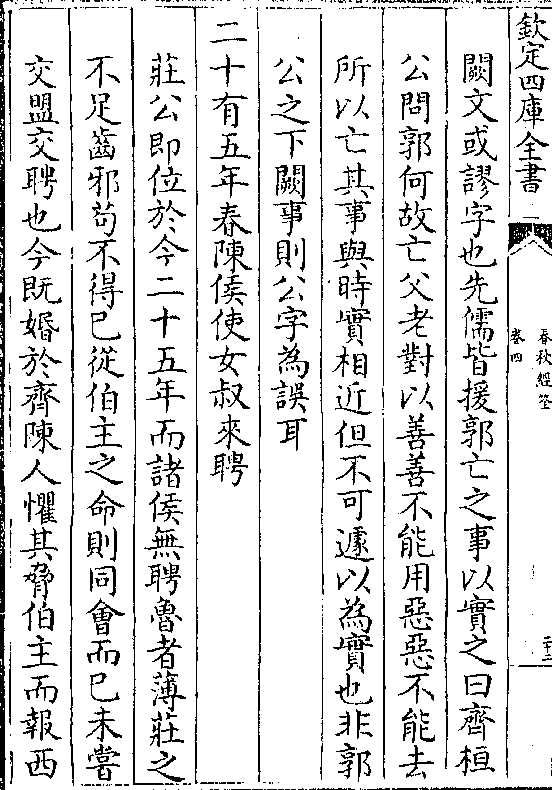 欽定四庫全書
春秋經筌
卷四
闕文或謬字也先儒皆援郭亡之事以實之曰齊桓
公問郭何故亡父老對以善善不能用惡惡不能去
所以亡其事與時實相近但不可遽以為實也非郭
公之下闕事則公字為誤耳
二十有五年春陳侯使女叔來聘
莊公即位於今二十五年而諸侯無聘魯者薄莊之
不足齒邪苟不得已從伯主之命則同會而已未嘗
交盟交聘也今既婚於齊陳人懼其脅伯主而報西